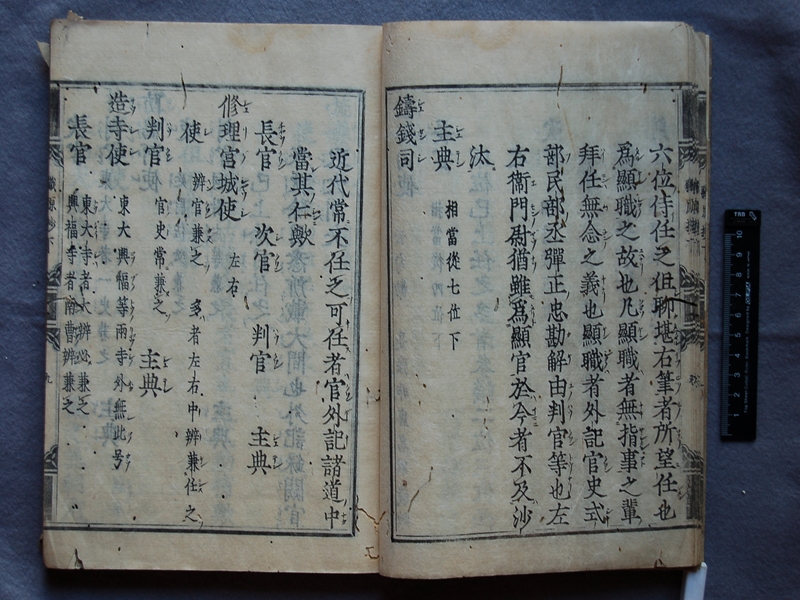 六位侍任之但聊堪右筆者所望任也
爲顯職之故也凡顯職者無指事之輩
拜任無念之義也顯職者外記官史式
部民部丞彈正忠勘解由判官等也左
右衞門尉猶雖爲顯官於今者不及沙
汰
主典 相當從七位下
鑄錢司
近代常不任之可任者官外記諸道中
當其仁歟
長官 次官 判官 主典
修理宮城使 左右
使 辨官兼之 多者左右中辨兼任之
判官 官史常兼之 主典
造寺使 東大興福等兩寺外無此号
長官 東大寺者大辨必兼之
興福寺者南曹辨兼之